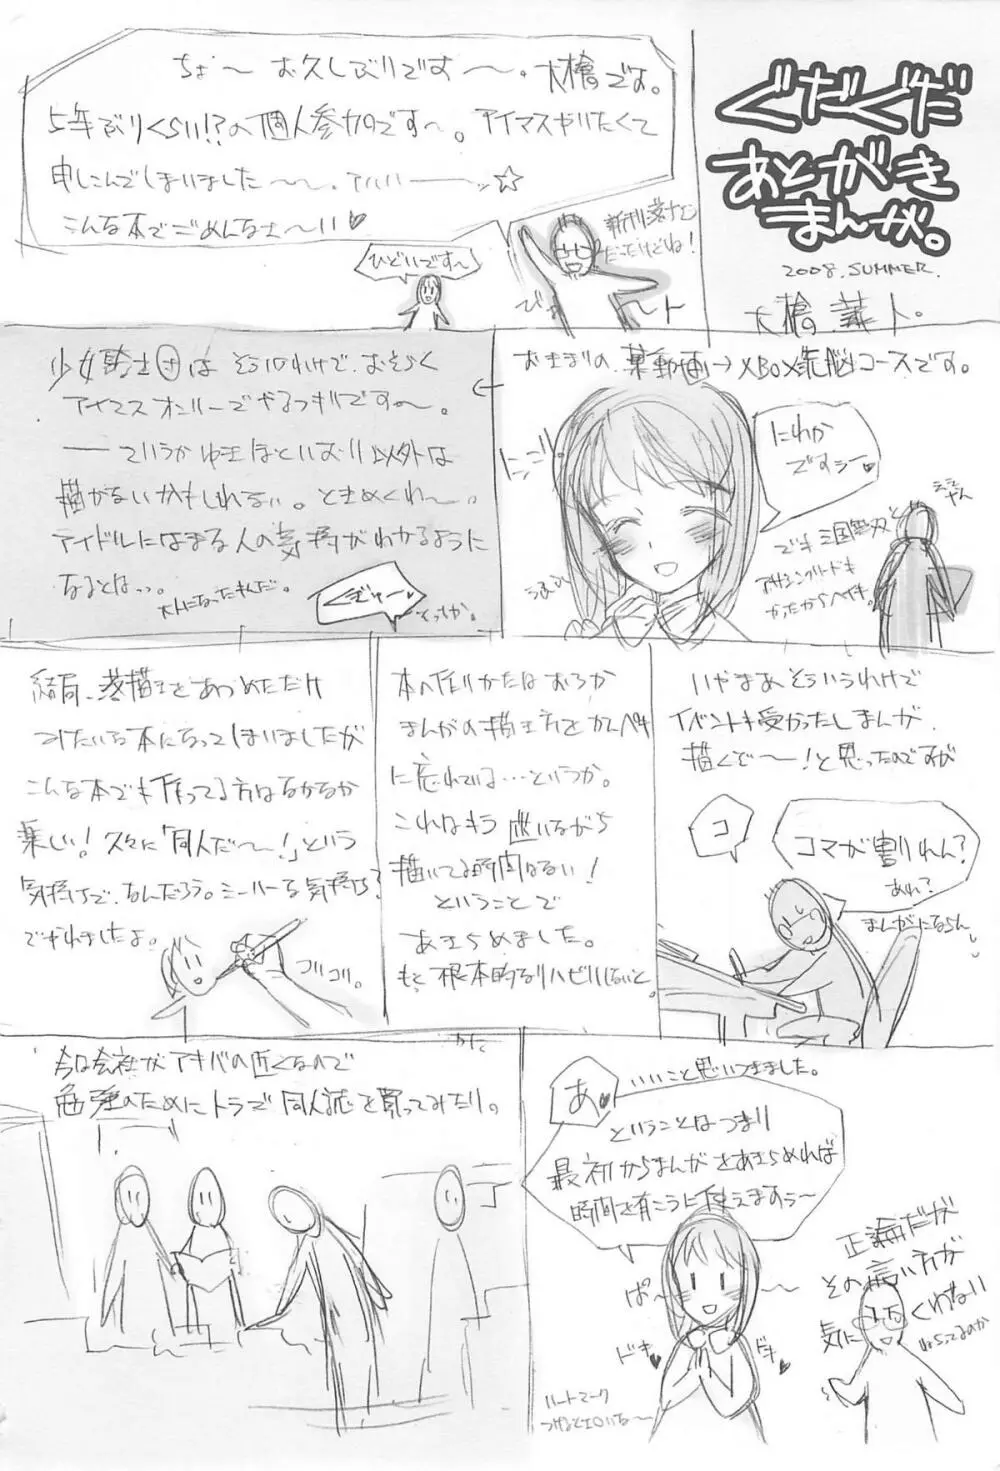 ぐだぐだ
あとがき
まんが。
2008.SUMMER.
大槍葦人。
ちょ〜お久しぶりです〜。大槍です。
5年ぶりくらい!?の個人参加です〜。アイマスやりたくて
申しこんでしまいました〜〜。アハハーーッ☆
こんな本でごめんなさ〜い♥
新刊落ナシ
だったけどね!
ひどいです〜
おきまりの、某動画→XBOX洗脳コースです。
にわか
ですぅー♥
でも三国無双と
アサシンクリードも
かったからヘイキ。
ええやん
少女騎士団はそういうわけで、おそらく
アイマスオンリーでやるつもりです〜。
ーーていうかゆきほといおり以外は
描かないかもしれない。ときめくわ〜
アイドルにはまる人の気持がわかるように
なるとはっ。
大人になったもんだ。
そっか。
いやまあそういうわけで
イベントも受かったしまんが
描くぞ〜ー!と思ったのですが
コ
コマが割れん?
あれ?
まんがにならん
本の作りかたはおろか
まんがの描き方をかんペキ
に忘れている…というか。
これはもう迷いながら
描いてる時間はない!
ということで
あきらめました。
結局、落描きをあつめただけ
みたいな本になってしまいましたが
こんな本でも作ってる方はなかなか
楽しい!久々に「同人だ〜ー!」という
気持ちで、なんだろう。ミーハーな気持ち?
でやれましたよ。
ゴリゴリ。
今は会社がアキバの近くなので
勉強のためにトラで同人誌を買ってみたり。
あ♥
いいこと思いつきました。
ということはつまり
最初からまんがをあきらめれば
時間を有こうに使えますぅ〜
ぱ〜
ドキ♥
ドキ♥
ハートマーク
正論だが
その言い方が
気にくわない